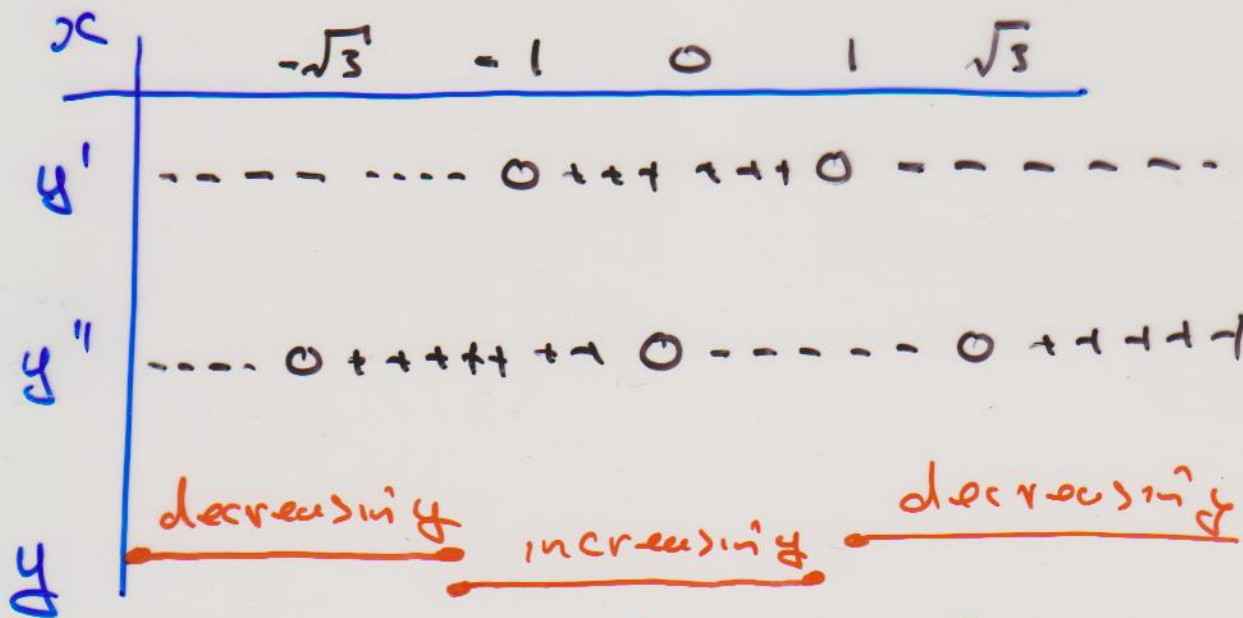 x -√3 -1 0 1 √3
y' ---- ---- 0 +++ +++ 0 - - - - - -
y" ---- 0 +++++ ++ 0 ----- - 0 +++++
decreasing increasing decreasing
y